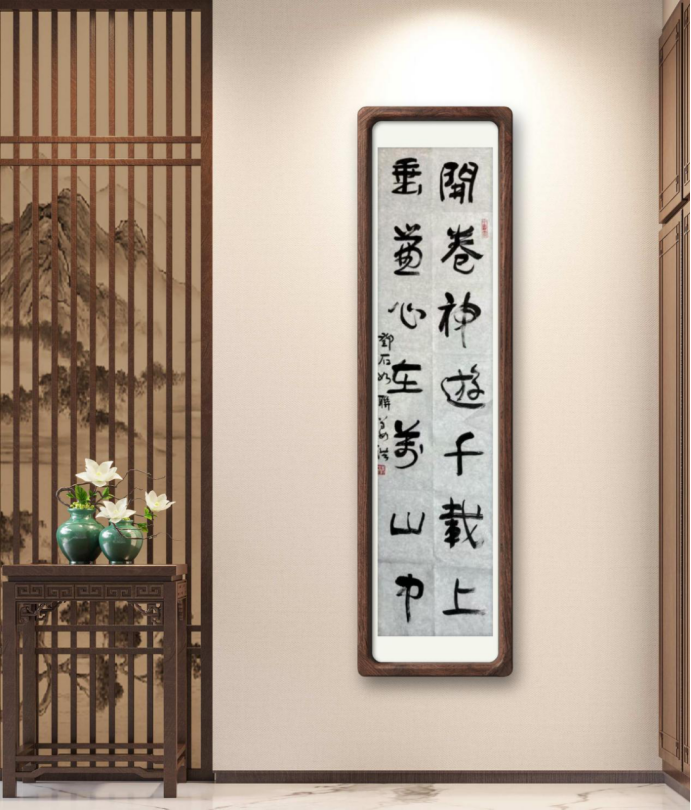 開卷神遊千載上
垂簾心在萬山中
鄧石如聯